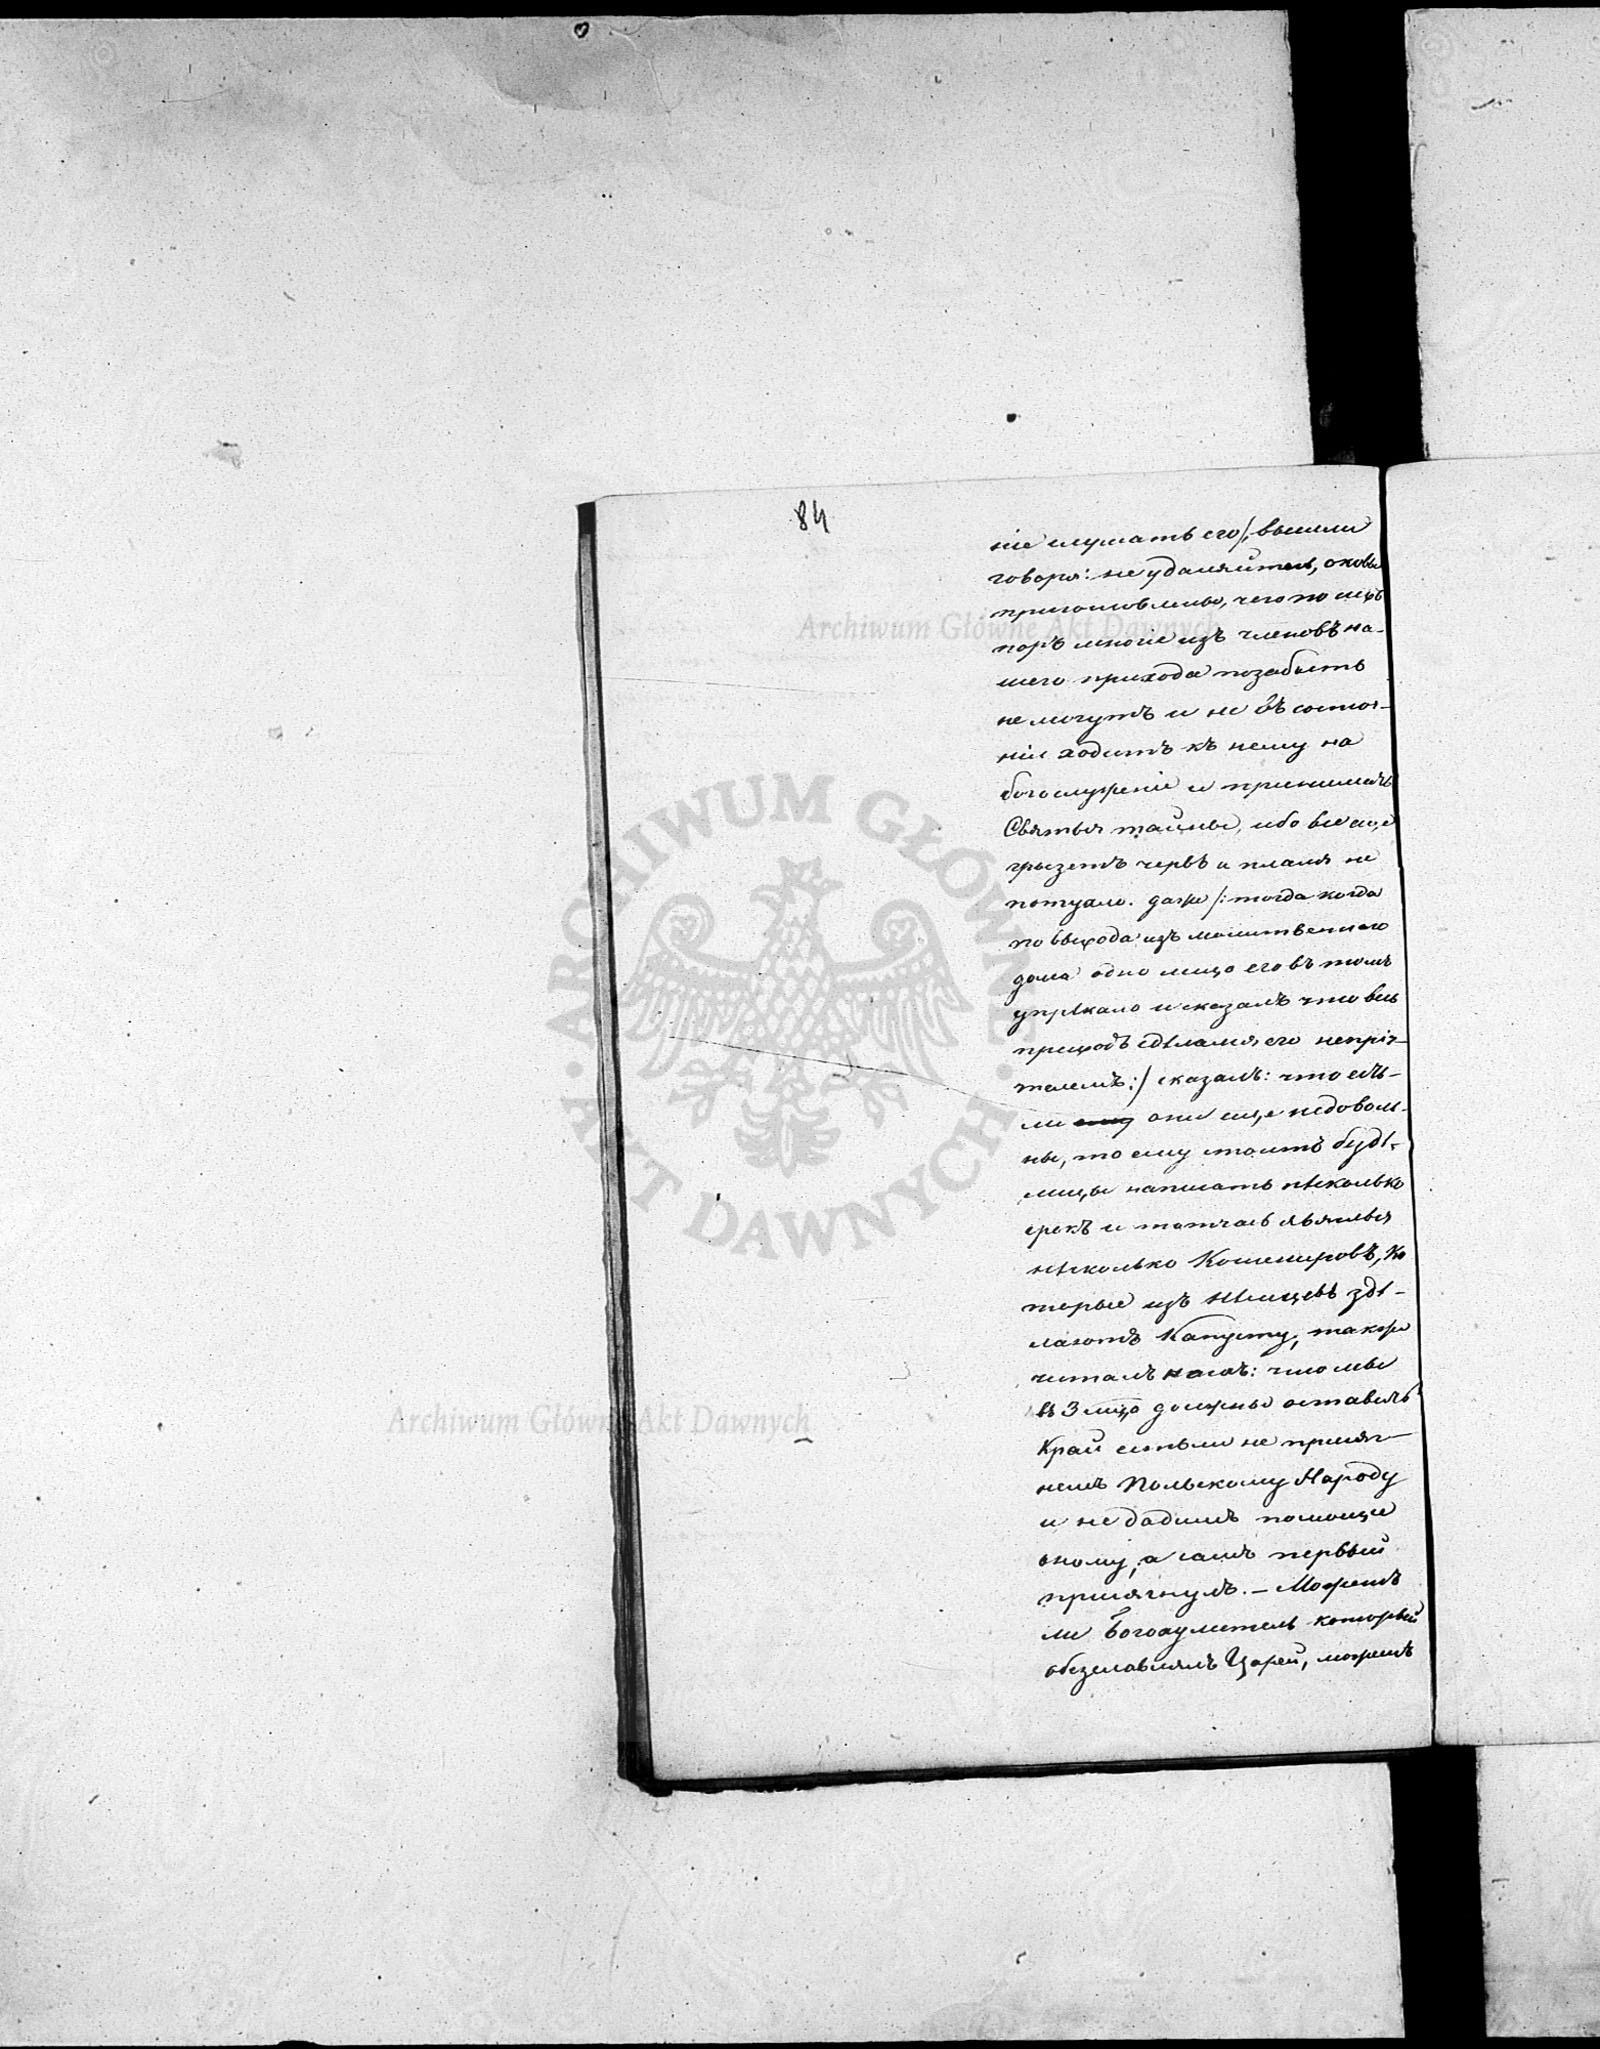 84
ніе слушать его/, вышли
говоря: не удаляйтесь, оковы
приготовлены, чего по сихъ
поръ многіе изъ членовъ на-
шего прихода позабыть
не могутъ и не въ состоя-
ніи ходить къ нему на
богослуженіе и принимать
Святыя тайны, ибо все еще
грызетъ червь и пламя не
потухло. даже /: тогда когда
по выхода изъ молитвеннаго
дома одно лицо его въ томъ
упрѣкало и сказалъ что весь
приходъ сдѣлался его непрія-
телемъ :/ сказалъ: что есть-
ли они еще недоволь-
ны, то ему стоитъ будѣ
написать нѣсколько
срокъ и тотчасъ явятся
нѣсколько Кошинеровъ, ко
торые изъ Нѣмцевъ здѣ-
лаютъ Капусту, также
читалъ намъ: что мы
въ 3 должны оставить
Край если мы не присяг-
немъ Польскому Народу
и не дадимъ помощи
оному, а самъ первый
присягнулъ. – Можетъ
ли Богохулитель который
обезславлялъ Царей, можетъ
Archiwum Główne Akt Dawnych
ARCHIWUM GŁÓWNE AKT DAWNYCH
Archiwum Główne Akt Dawnych